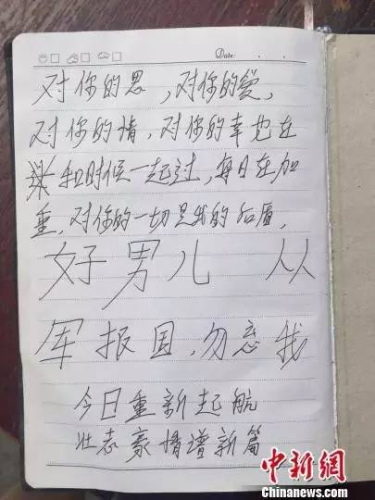 Date: . .
对你的思,对你的爱,
对你的情,对你的幸 在
和时候一起过,每日在加
重,对你的一切是我的后盾,
好男儿 从
军报国,勿忘我
今日重新起航
壮志豪情谱新篇
中新网
chinanews.com